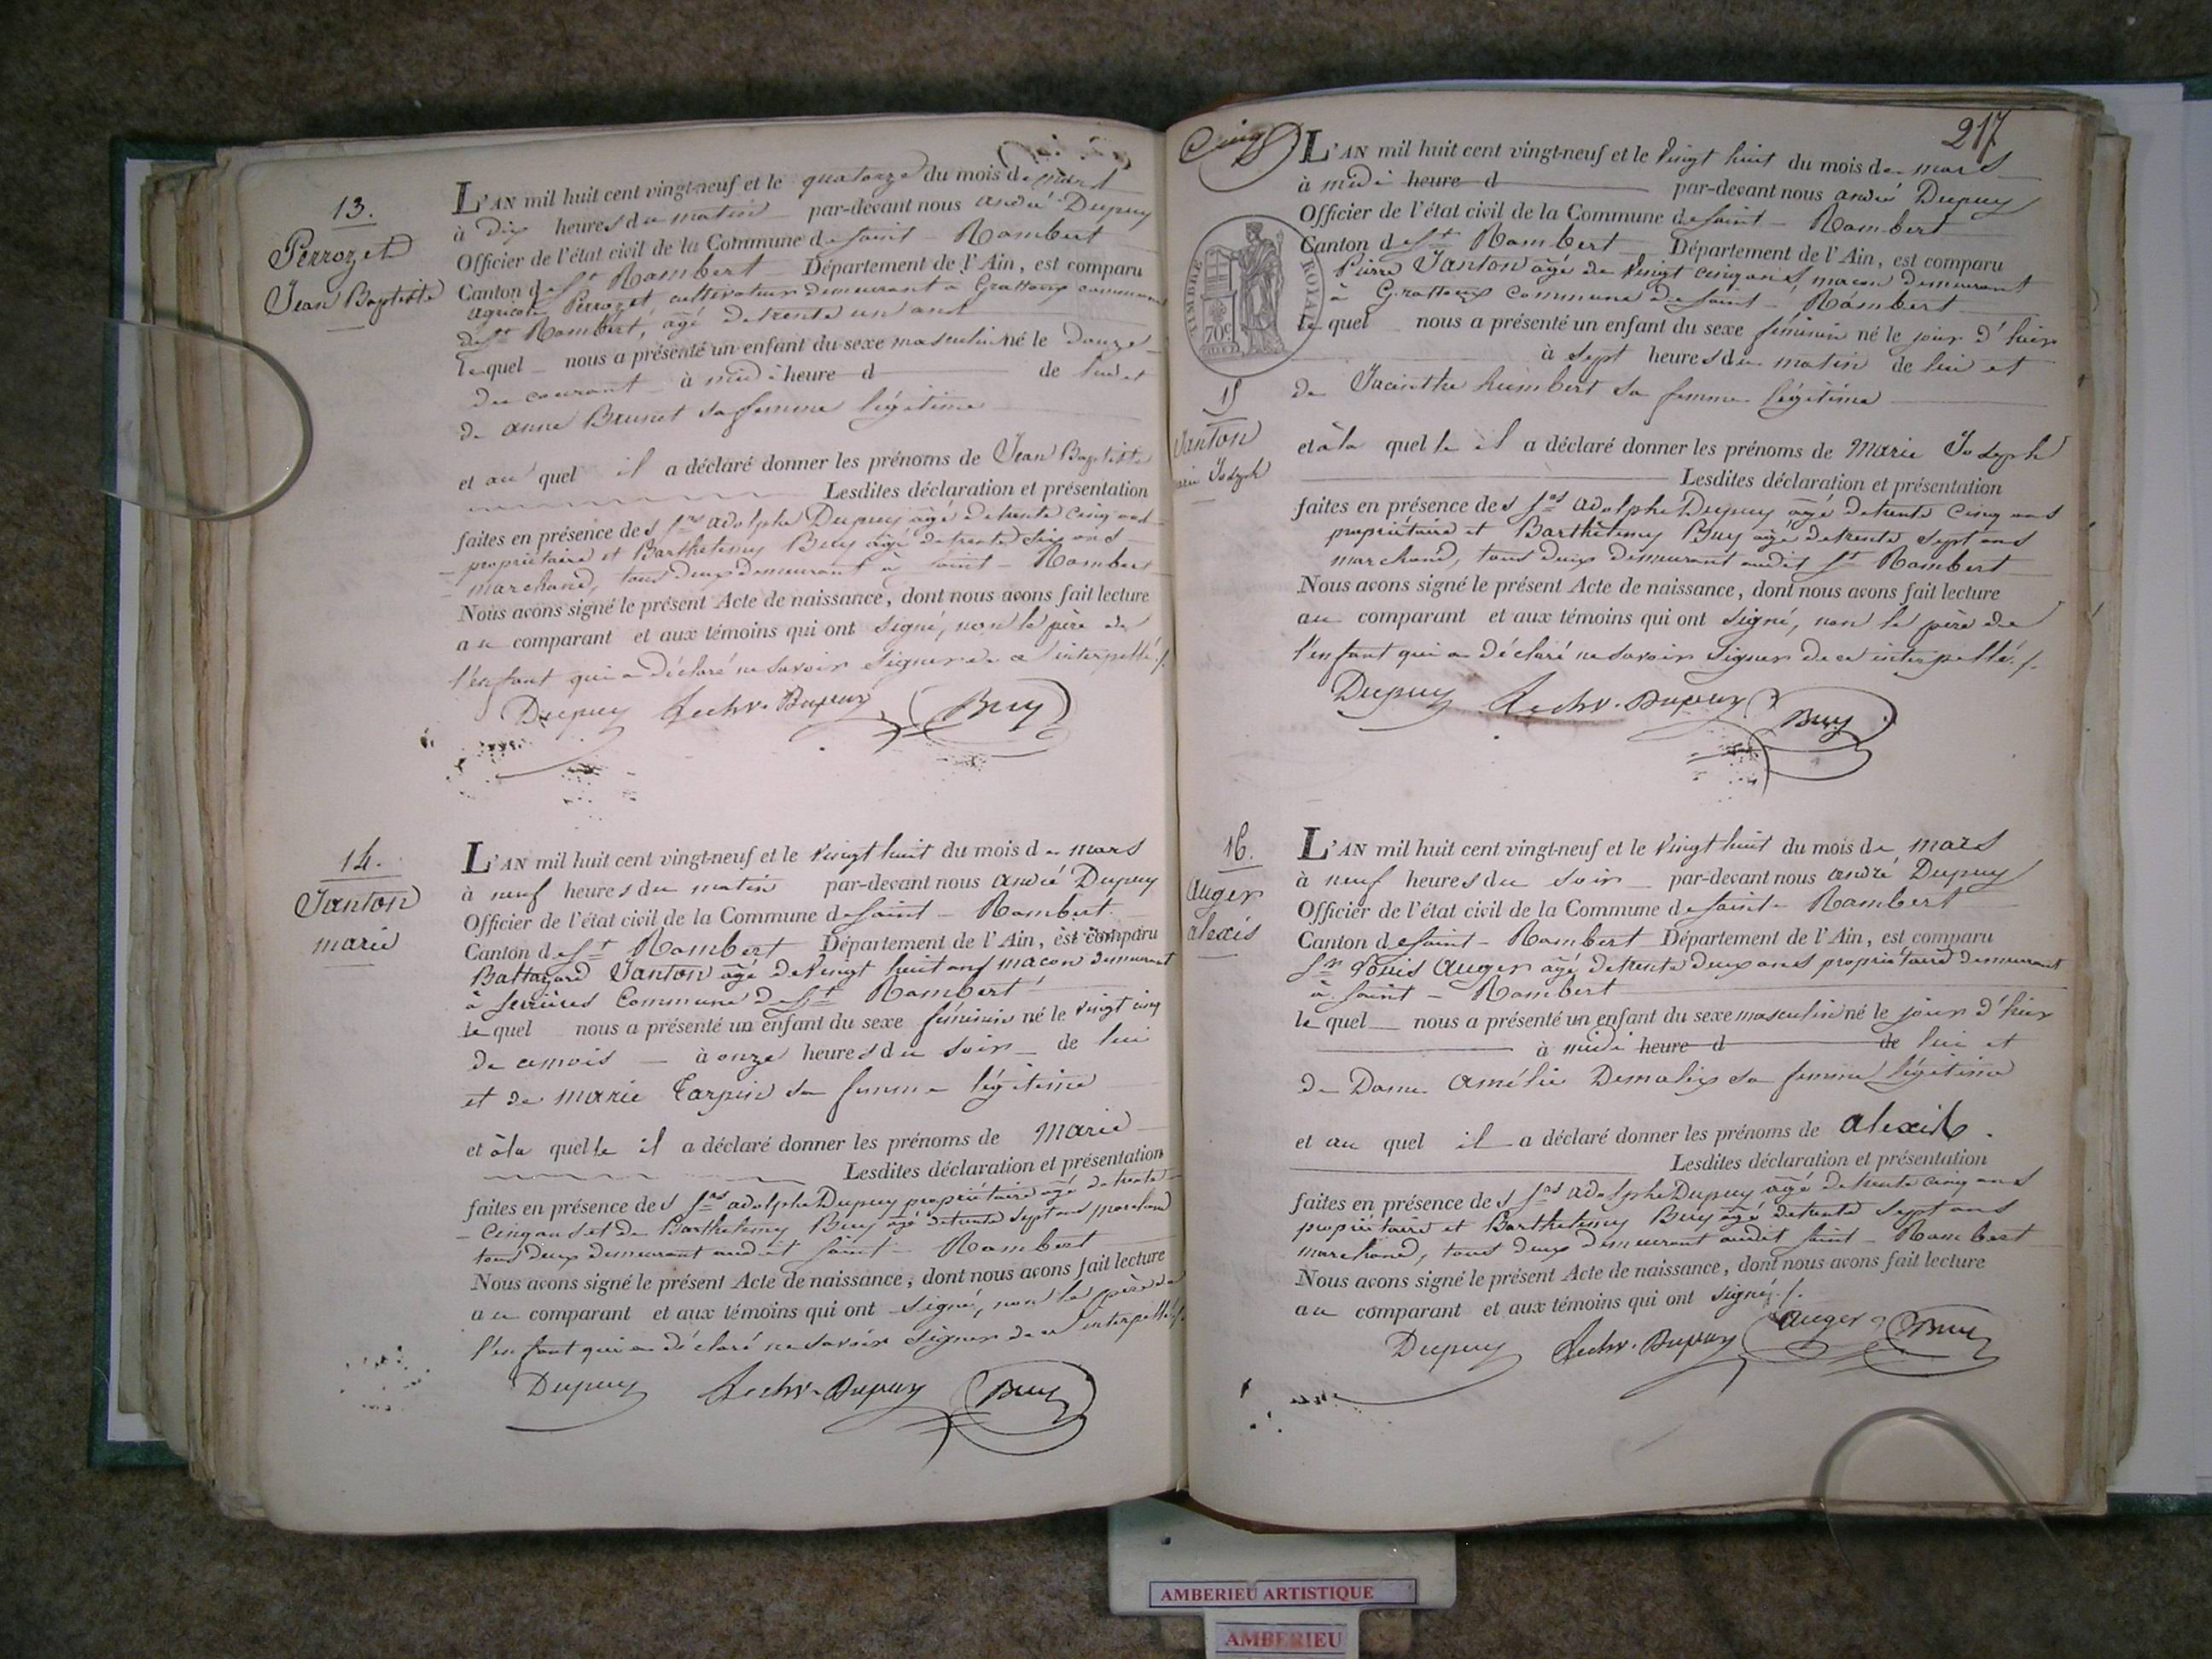 13.
Perrozet
Jean Baptiste
L'AN mil huit cent vingt-neuf et le quatorze du mois de mars
à dix heures du matin par-devant nous andré Dupuy
Officier de l'état civil de la Commune de saint - Rambert
Canton de St Rambert Département de l'Ain, est comparu
agricole Perrozet cultivateur demeurant à Grattoux commune
de St Rambert, âgé de trente un ans
lequel nous a présenté un enfant du sexe masculin né le douze
du courant à midi heure d de lui et
de anne Brunet sa femme légitime
et au quel il a déclaré donner les prénoms de Jean Baptiste
Lesdites déclaration et présentation
faites en présence des Srs adolphe Dupuy âgé de trente cinq ans
propriétaire et Barthelemy Buy âgé de trente six ans
marchand, tous deux demeurant à saint - Rambert
Nous avons signé le présent Acte de naissance, dont nous avons fait lecture
au comparant et aux témoins qui ont signé, non le père de
l'enfant qui a déclaré ne savoir signer de ce interpellé ./.
Dupuy Dupuy Buy
14.
Janton
marie
L'AN mil huit cent vingt-neuf et le vingt huit du mois de mars
à neuf heures du matin par-devant nous andré Dupuy
Officier de l'état civil de la Commune de saint - Rambert
Canton de St Rambert Département de l'Ain, est comparu
Baltazard Janton âgé de vingt huit ans macon demeurant
à serrières Commune de St Rambert
lequel nous a présenté un enfant du sexe féminin né le vingt cinq
de ce mois à onze heures du soir de lui
et de marie Tarpin sa femme légitime
et à la quelle il a déclaré donner les prénoms de Marie
Lesdites déclaration et présentation
faites en présence des Srs adolphe Dupuy propriétaire âgé de trente
cinq ans et de Barthelemy Buy âgé de trente sept ans marchand
tous deux demeurant audit saint - Rambert
Nous avons signé le présent Acte de naissance, dont nous avons fait lecture
au comparant et aux témoins qui ont signé, non le père de
l'enfant qui a déclaré ne savoir signer de ce interpellé ./.
Dupuy Dupuy Buy
217
Cinq
TIMBRE ROYAL
70c
L'AN mil huit cent vingt-neuf et le vingt huit du mois de mars
à midi heure d par-devant nous andré Dupuy
Officier de l'état civil de la Commune de saint - Rambert
Canton de St Rambert Département de l'Ain, est comparu
Pierre Janton âgé de vingt cinq ans, macon demeurant
à Grattoux commune de saint - Rambert
lequel nous a présenté un enfant du sexe féminin né le jour d'hier
à sept heures du matin de lui et
de Jacinthe humbert sa femme légitime
15
Janton
Joseph
et à la quelle il a déclaré donner les prénoms de Marie Joseph
Lesdites déclaration et présentation
faites en présence des Srs adolphe Dupuy âgé de trente cinq ans
propriétaire et Barthélemy Buy âgé de trente sept ans
marchand, tous deux demeurant audit St Rambert
Nous avons signé le présent Acte de naissance, dont nous avons fait lecture
au comparant et aux témoins qui ont signé, non le père de
l'enfant qui a déclaré ne savoir signer de ce interpellé ./.
Dupuy Dupuy Buy
16.
auger
alexis
L'AN mil huit cent vingt-neuf et le vingt huit du mois de mars
à neuf heures du soir par-devant nous andré Dupuy
Officier de l'état civil de la Commune de saint - Rambert
Canton de saint - Rambert Département de l'Ain, est comparu
Sr Louis auger âgé de trente deux ans propriétaire demeurant
à saint - Rambert
lequel nous a présenté un enfant du sexe masculin né le jour d'hier
à midi heure d de lui et
de Dame amélie Demalix sa femme légitime
et au quel il a déclaré donner les prénoms de alexis .
Lesdites déclaration et présentation
faites en présence des Srs adolphe Dupuy âgé de trente cinq ans
propriétaire et Barthelemy Buy âgé de trente sept ans
marchand, tous deux demeurant audit saint - Rambert
Nous avons signé le présent Acte de naissance, dont nous avons fait lecture
au comparant et aux témoins qui ont signé ./.
Dupuy Dupuy auger Buy
AMBERIEU ARTISTIQUE
AMBERIEU